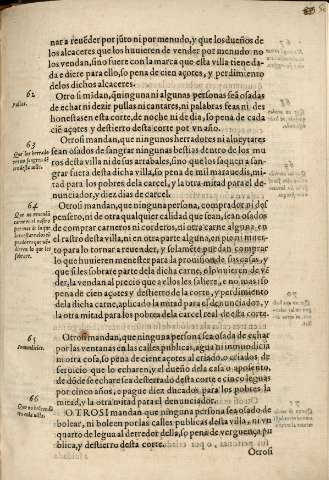 nar a reuẽder por jũto ni por menudo, y que los dueños de
los alcaceres que los huuieren de vender por menudo no
los vendan, sino fuere con la marca que esta villa tiene da-
da e diere para ello, so pena de cien açotes, y perdimiento
de los dichos alcaceres.
62
Pullas.
Otro si mãdan, q̃ ninguna ni algunа personas seã osadas
de echar ni dezir pullas ni cantares, ni palabras feas ni des
honestas en esta corte, de noche ni de dia, so pena de cada
ciẽ açotes y destierro desta corte por vn año.
63
Otrosi mandan, que ningunos herradores ni albeytares
sean osados de sangrar ningunas bestias dentro de los mu
ros desta villa ni de sus arrabales, sino que los saquen a san-
grar fuera desta dicha villa, so pena de mil marauedis, mi-
tad para los pobres de la carcel, y la otra mitad para el de-
nunciador, y diez dias de carcel.
64
Otrosi mandan, que ninguna persona, comprador ni des
pensero, ni de otra qualquier calidad que sean, sean osados
de comprar carneros ni corderos, ni otra carne alguna en
el rastro desta villa, ni en otra parte alguna, en pie ni muer-
to para lo tornar a reuender, y solamẽte puedan comprar
lo que huuieren menester para la prouision de sus casas, y
que si les sobrare parte de la dicha carne, o lo quieren de vẽ
der, la vendan al precio que a ellos les saliere, e no mas: so
pena de cien açotes y destierro de la corte, y perdimiento
de la dicha carne, aplicado la mitad para el denunciador, y
la otra mitad para los pobres de la carcel real de esta corte.
65
Inmundicias.
Otrosi mandan, que ninguna persona sea osada de echar
por las ventanas en las calles publicas, agua ni inmundicia
ni otra cosa, so pena de cient açotes al criado, o criados de
seruicio que lo echaren, y el dueño de la casa o aposento,
de dõde se echare sea desterrado desta corte e cinco leguas
por cinco años, o pague diez ducados para los pobres la
mitad, y la otra mitad para el denunciador.
66
OTROSI mandan que ninguna persona sea osado de
bolear, ni boleen por las calles publicas desta villa, ni vn
quarto de legua al derredor della, so pena de verguença pu
blica, y destierro desta corte.
Otrosi